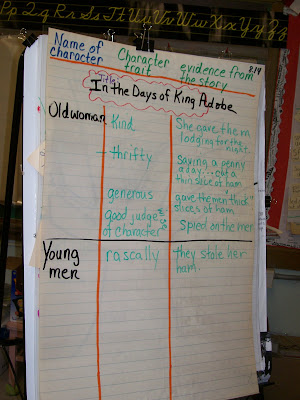 Pp Qq Rr Ss Tt Uu Vv Ww Xx Yy Zz
8.19
Name of character
Character trait
evidence from the story
Title
In the Days of King Adobe
Old woman
Kind
She gave them
lodging for the
night.
thrifty
saving a penny
a day... cut a
thin slice of ham
generous
gave the men "thick"
slices of ham.
good judge
of character
spied on the men
Young
men
rascally
they stole her
ham.